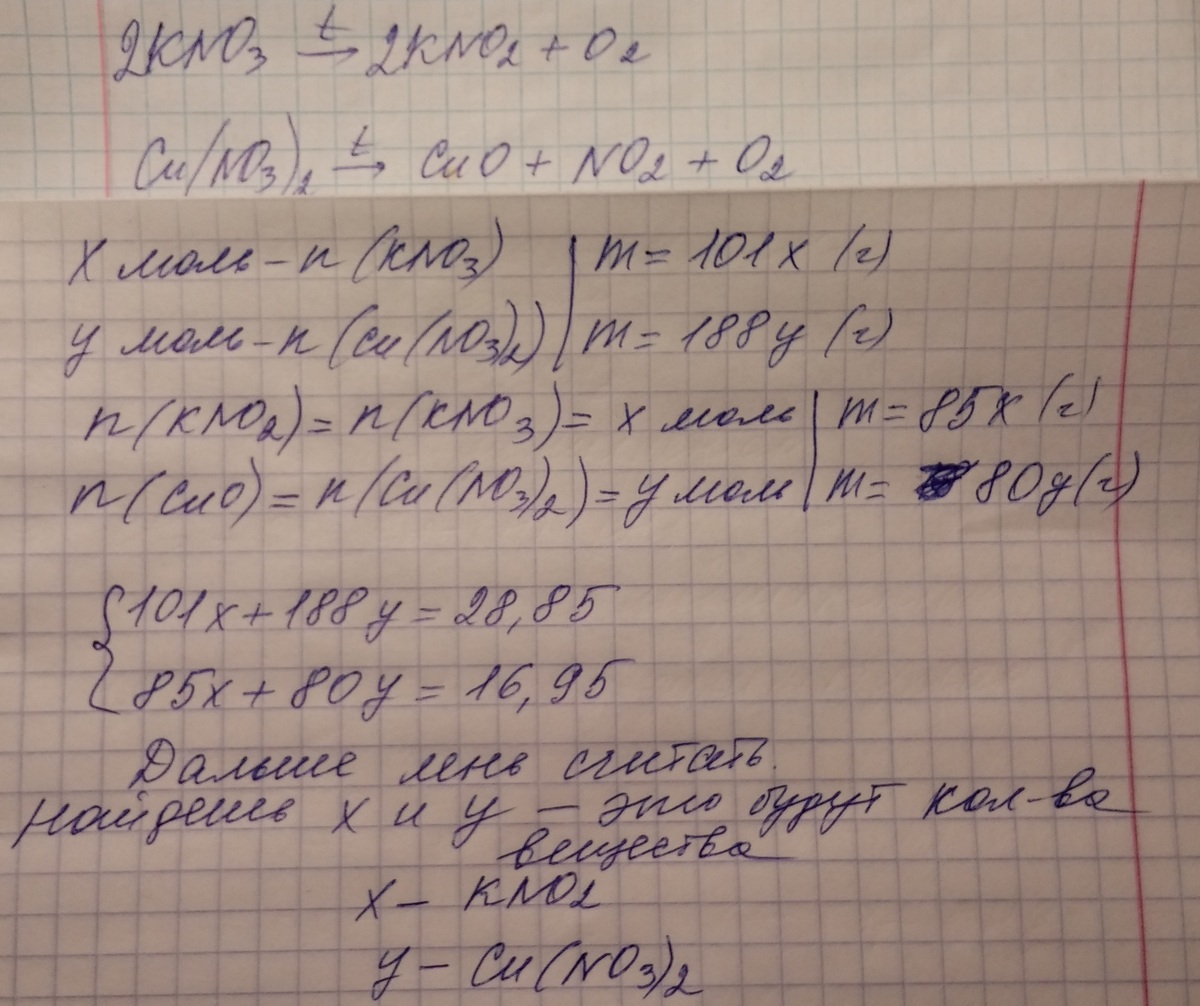 2KNO₃ →ᵗ 2KNO₂ + O₂
Cu(NO₃)₂ →ᵗ CuO + NO₂ + O₂
x моль – n (KNO₃) | m = 101x (г)
y моль – n (Cu(NO₃)₂) | m = 188y (г)
n(KNO₂) = n(KNO₃) = x моль | m = 85x (г)
n(CuO) = n(Cu(NO₃)₂) = y моль | m = 80y (г)
{ 101x + 188y = 28,85
85x + 80y = 16,95
Дальше лень считать.
Найдешь x и y – это будут кол-ва
вещества
x – KNO₂
y – Cu(NO₃)₂